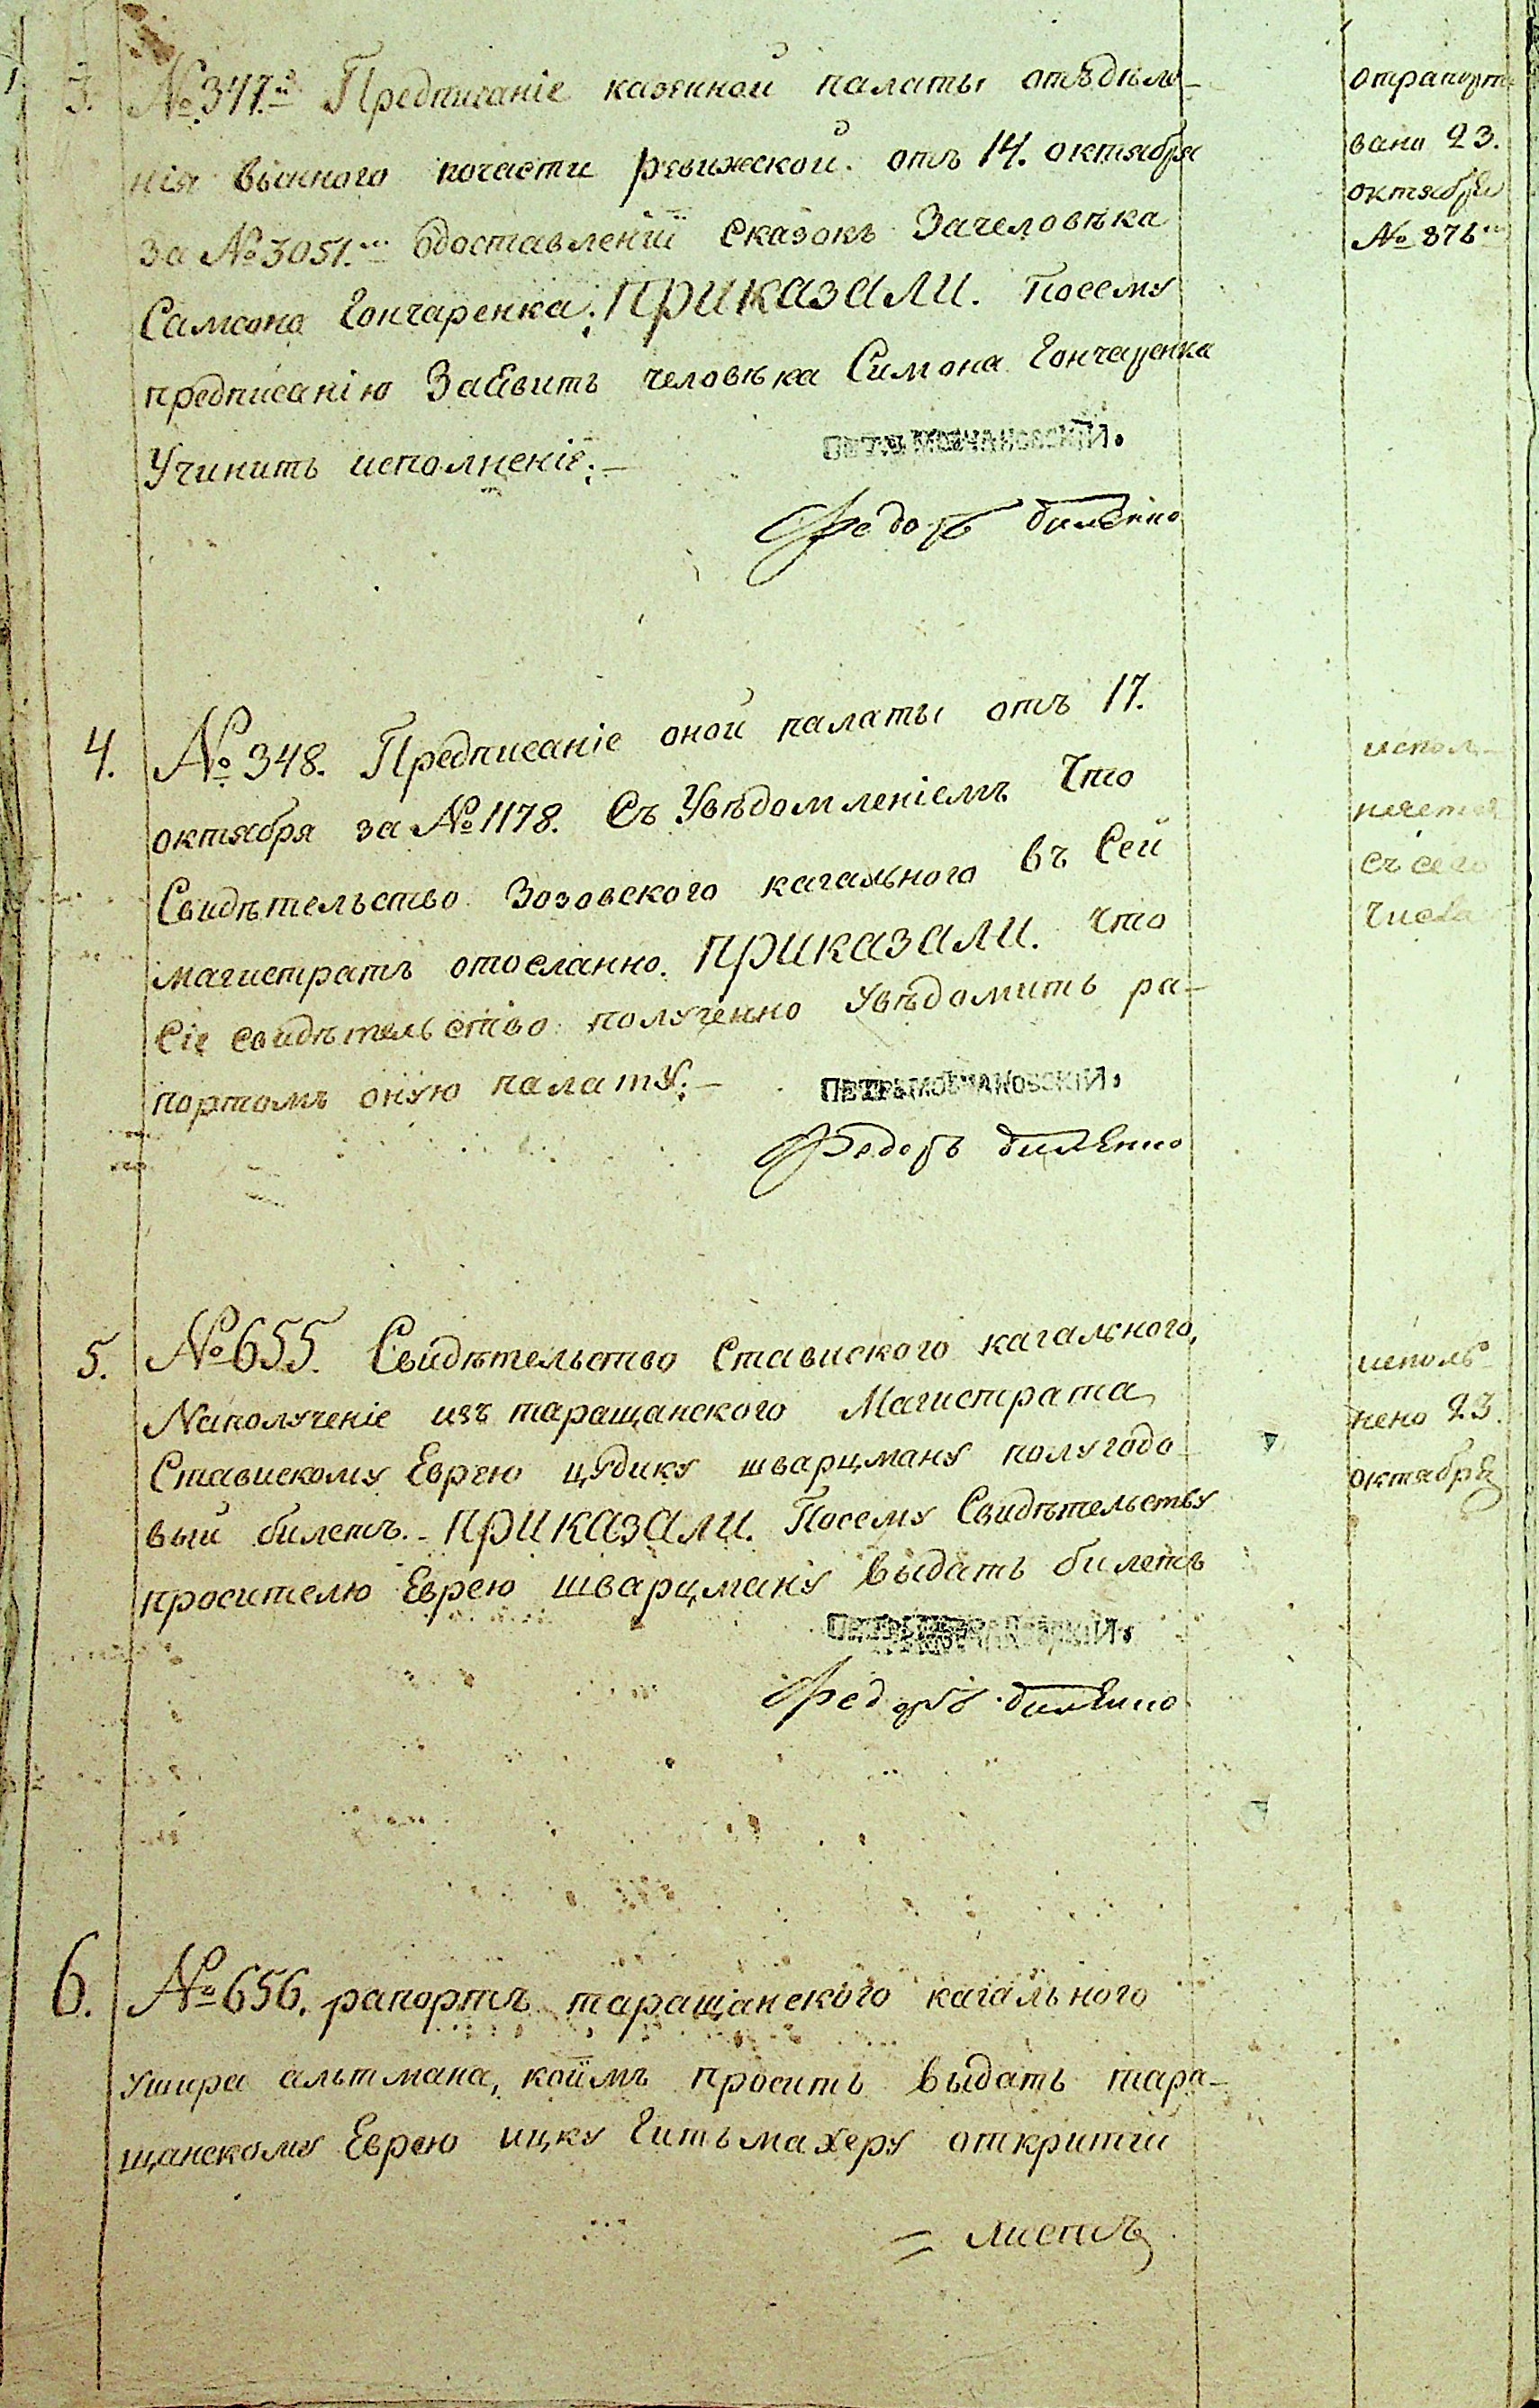 3. №347.й Предписаніе казенной палаты отѣделе-
нія виннаго почасти ревижской. отъ 14. октября
за №3051.м одоставленіи сказокъ Зачеловѣка
Самсона Гончаренка; ПРИКАЗАЛИ. Посему
предписанію Заявить человѣка Симона Гончаренка
Учинить исполненіе;—
ПЕТРЪ МОВЧАНОВСКІЙ.
Федоръ
отрапорто
вано 23.
октября
№ 876
4. №348. Предписаніе оной палаты отъ 17.
октября за №1178. Съ Увѣдомленіемъ Что
Свидѣтельство Зозовского кагального въ Сей
магистратъ отосланно. ПРИКАЗАЛИ. Что
Сіе свидѣтельство полученно Увѣдомить ра-
портомъ оную палату;—
ПЕТРЪ МОВЧАНОВСКІЙ.
Федоръ
испол-
няется
съ сего
Числа
5. №655. Свидѣтельство Ставиского кагального,
Наполученіе изъ таращанского Магистрата
Ставискому Еврею цудику шварцману полугодо-
вый билетъ.- ПРИКАЗАЛИ. Посему Свидѣтельству
просителю Еврею шварцману выдать билетъ
Федоръ
исполь-
нено 23.
октября
6. №656. рапортъ таращанского кагального
ушира альтмана, коимъ просить выдать тара-
щанскому Еврею ицку Гитьмахеру откритій
= листъ